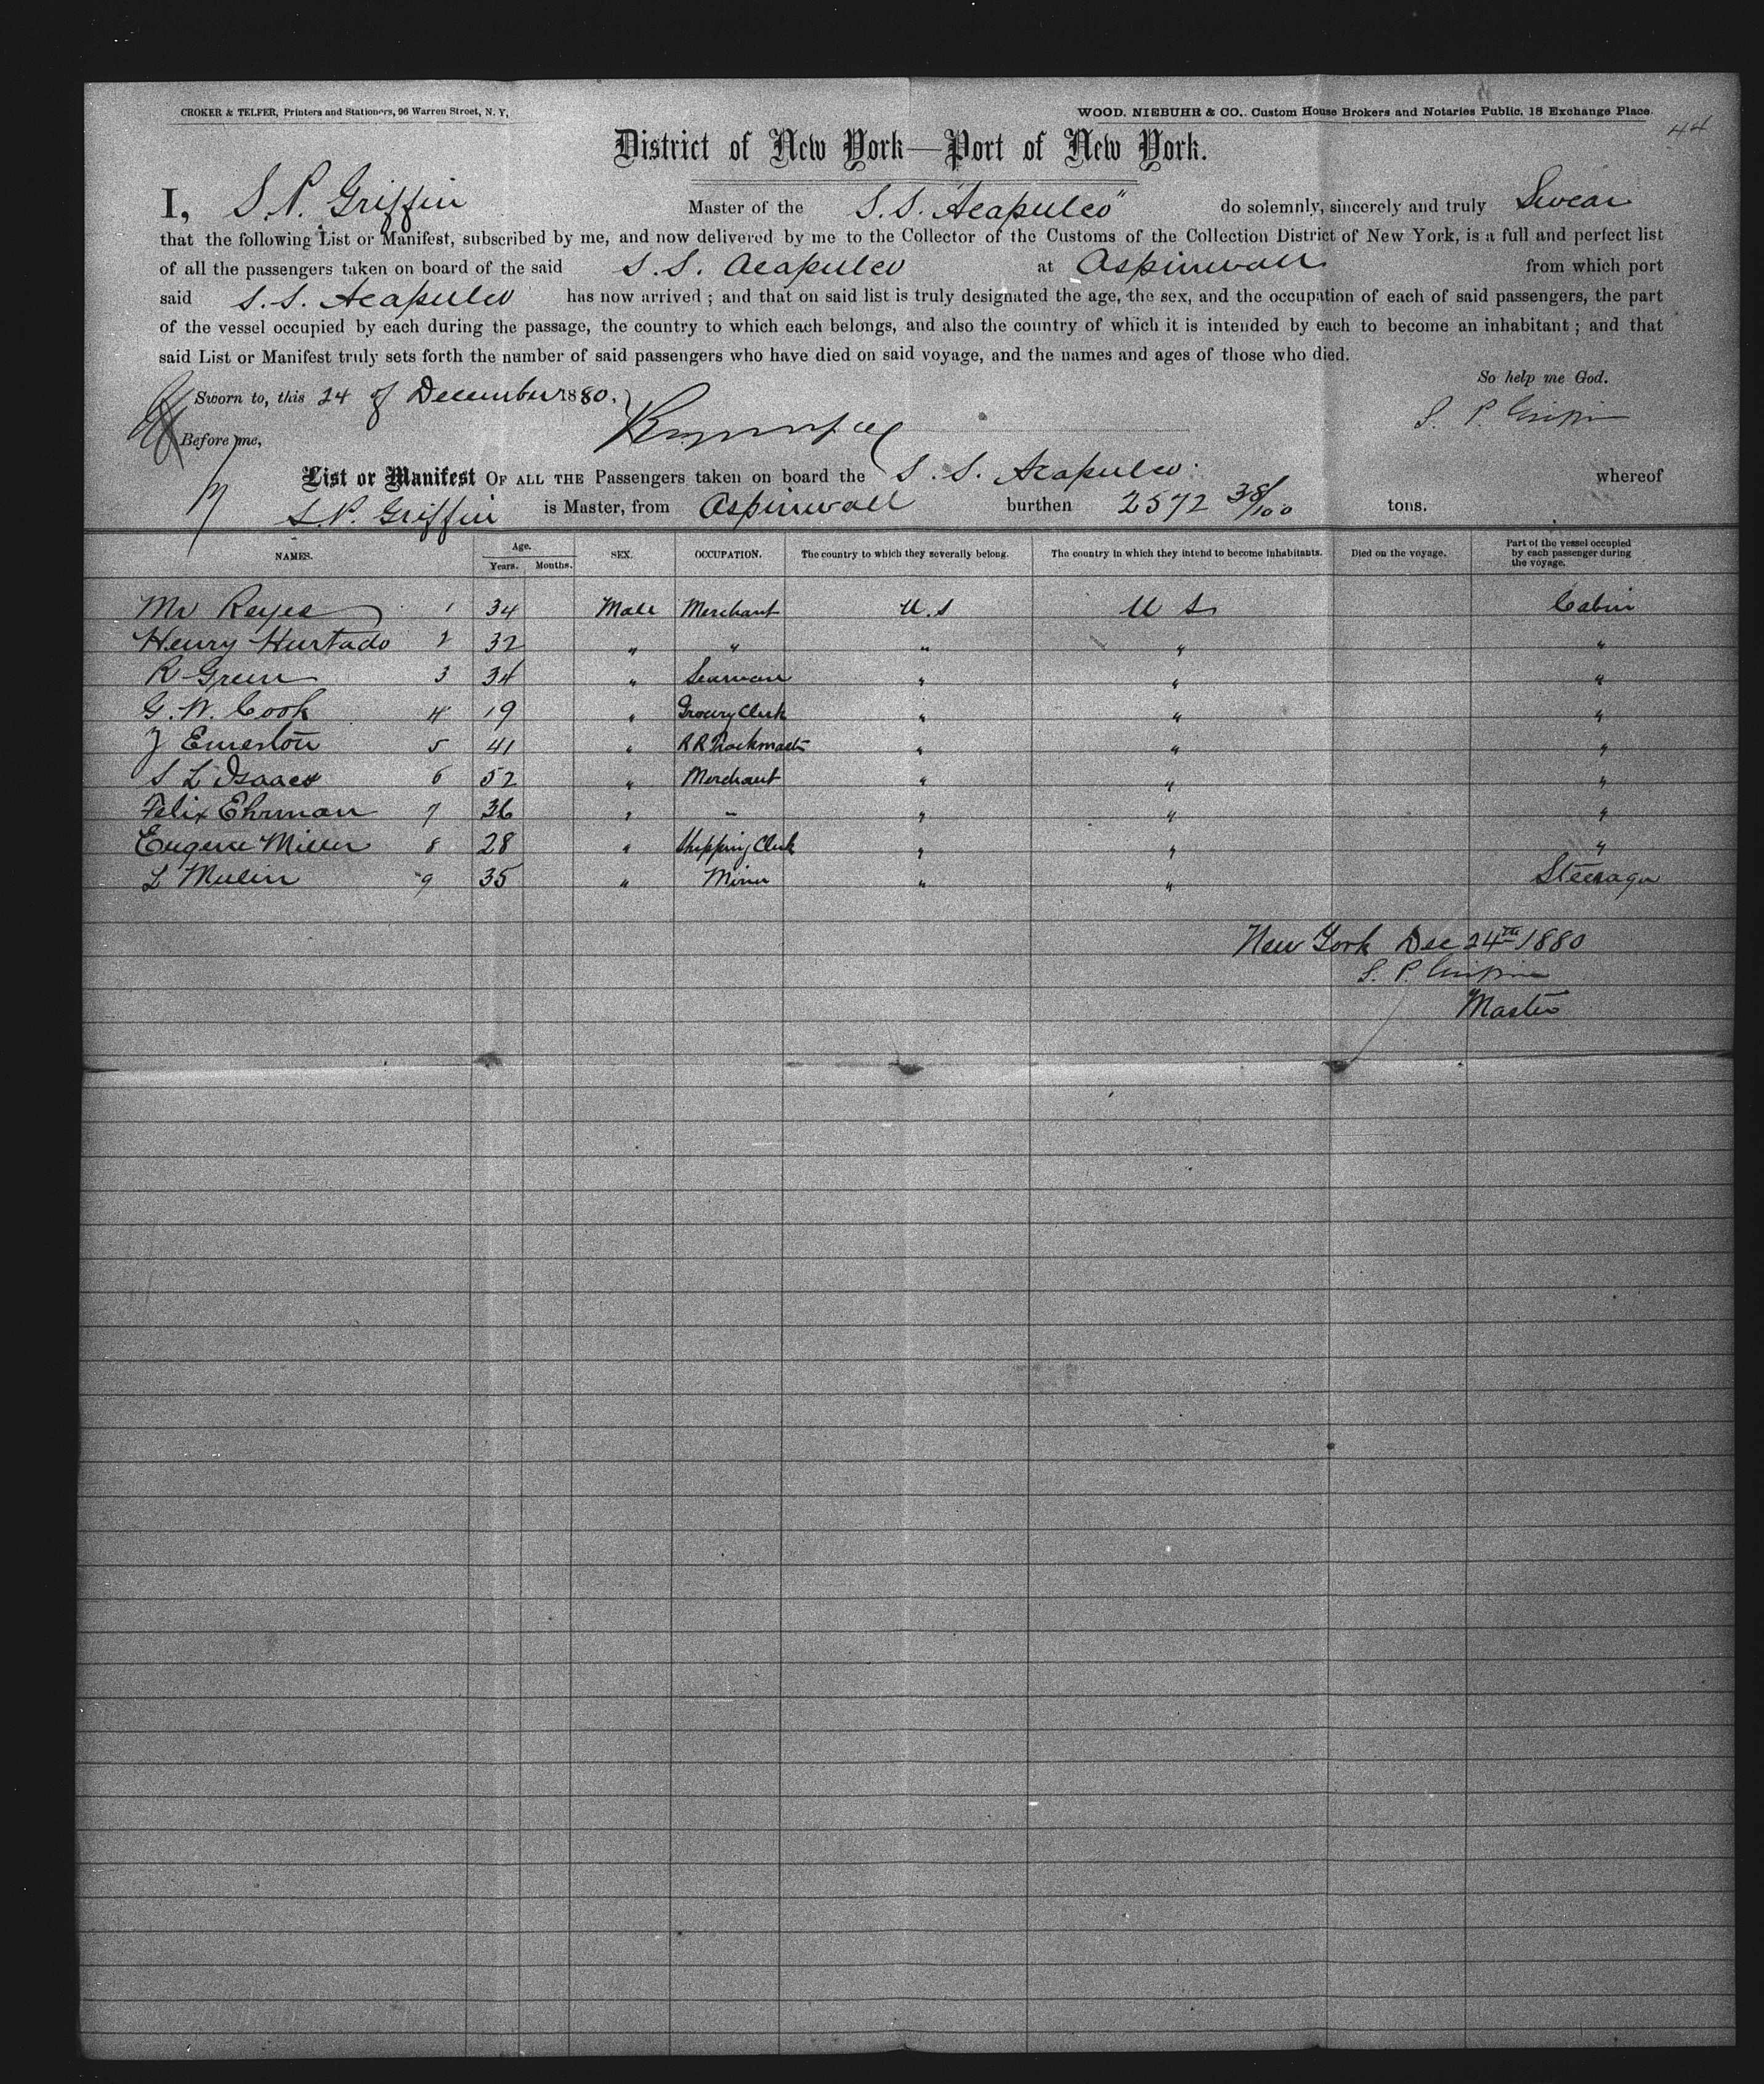 CROKER & TELFER, Printers and Stationers, 96 Warren Street, N. Y,
WOOD. NIEBUHR & CO.. Custom House Brokers and Notaries Public, 18 Exchange Place.
44
District of New York—Port of New York.
I, S. P. Griffin Master of the S.S. "Acapulco" do solemnly, sincerely and truly Swear
that the following List or Manifest, subscribed by me, and now delivered by me to the Collector of the Customs of the Collection District of New York, is a full and perfect list
of all the passengers taken on board of the said S.S. Acapulco at Aspinwall from which port
said S.S. Acapulco has now arrived ; and that on said list is truly designated the age, the sex, and the occupation of each of said passengers, the part
of the vessel occupied by each during the passage, the country to which each belongs, and also the country of which it is intended by each to become an inhabitant ; and that
said List or Manifest truly sets forth the number of said passengers who have died on said voyage, and the names and ages of those who died.
So help me God.
Sworn to, this 24 of December 1880.
S. P. Griffin
Before me,
List or Manifest OF ALL THE Passengers taken on board the S. S. Acapulco whereof
S.P. Griffin is Master, from Aspinwall burthen 2572 38/100 tons.
NAMES. Age. Years. Months. SEX. OCCUPATION. The country to which they severally belong. The country in which they intend to become inhabitants. Died on the voyage. Part of the vessel occupied by each passenger during the voyage.
Mr Reyes 1 34 Male Merchant U.S U S Cabin
Henry Hurtado 2 32 " " " " "
R Green 3 34 " Seaman " " "
G. W. Cook 4 19 " Grocery Clerk " " "
5 41 " R R Trackmaster " " "
S L Isaacs 6 52 " Merchant " " "
Felix Ehrman 7 36 " " " " "
Eugene Miller 8 28 " Shipping Clerk " " "
L Mulin 9 35 " Miner " " Steerage
New York Dec 24th 1880
S. P. Griffin
Master